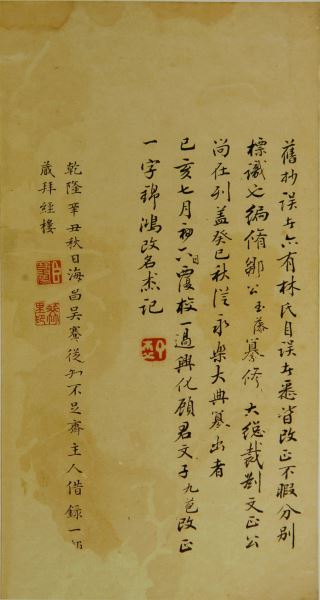 舊抄誤字亦有林氏自誤字悉皆改正不暇分别
標識也編脩鄒公玉藻纂修 大總裁劉文正公
尚在列盖癸巳秋從永樂大典纂出者
己亥七月初六日覆校一過興化顧君文子九苞改正
一字錦鴻改名杰記
乾隆辛丑秋日海昌吳騫從知不足齋主人借錄一部
藏拜經樓